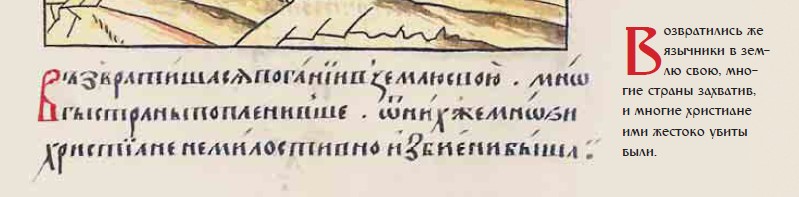 Възвратишася погании в землю свою . мно
гы страны попленивше . ѿ них же мнози
христїане немилостивно избиени быша
Возвратились же
язычники в зем-
лю свою, мно-
гие страны захватив,
и многие христиане
ими жестоко убиты
были.